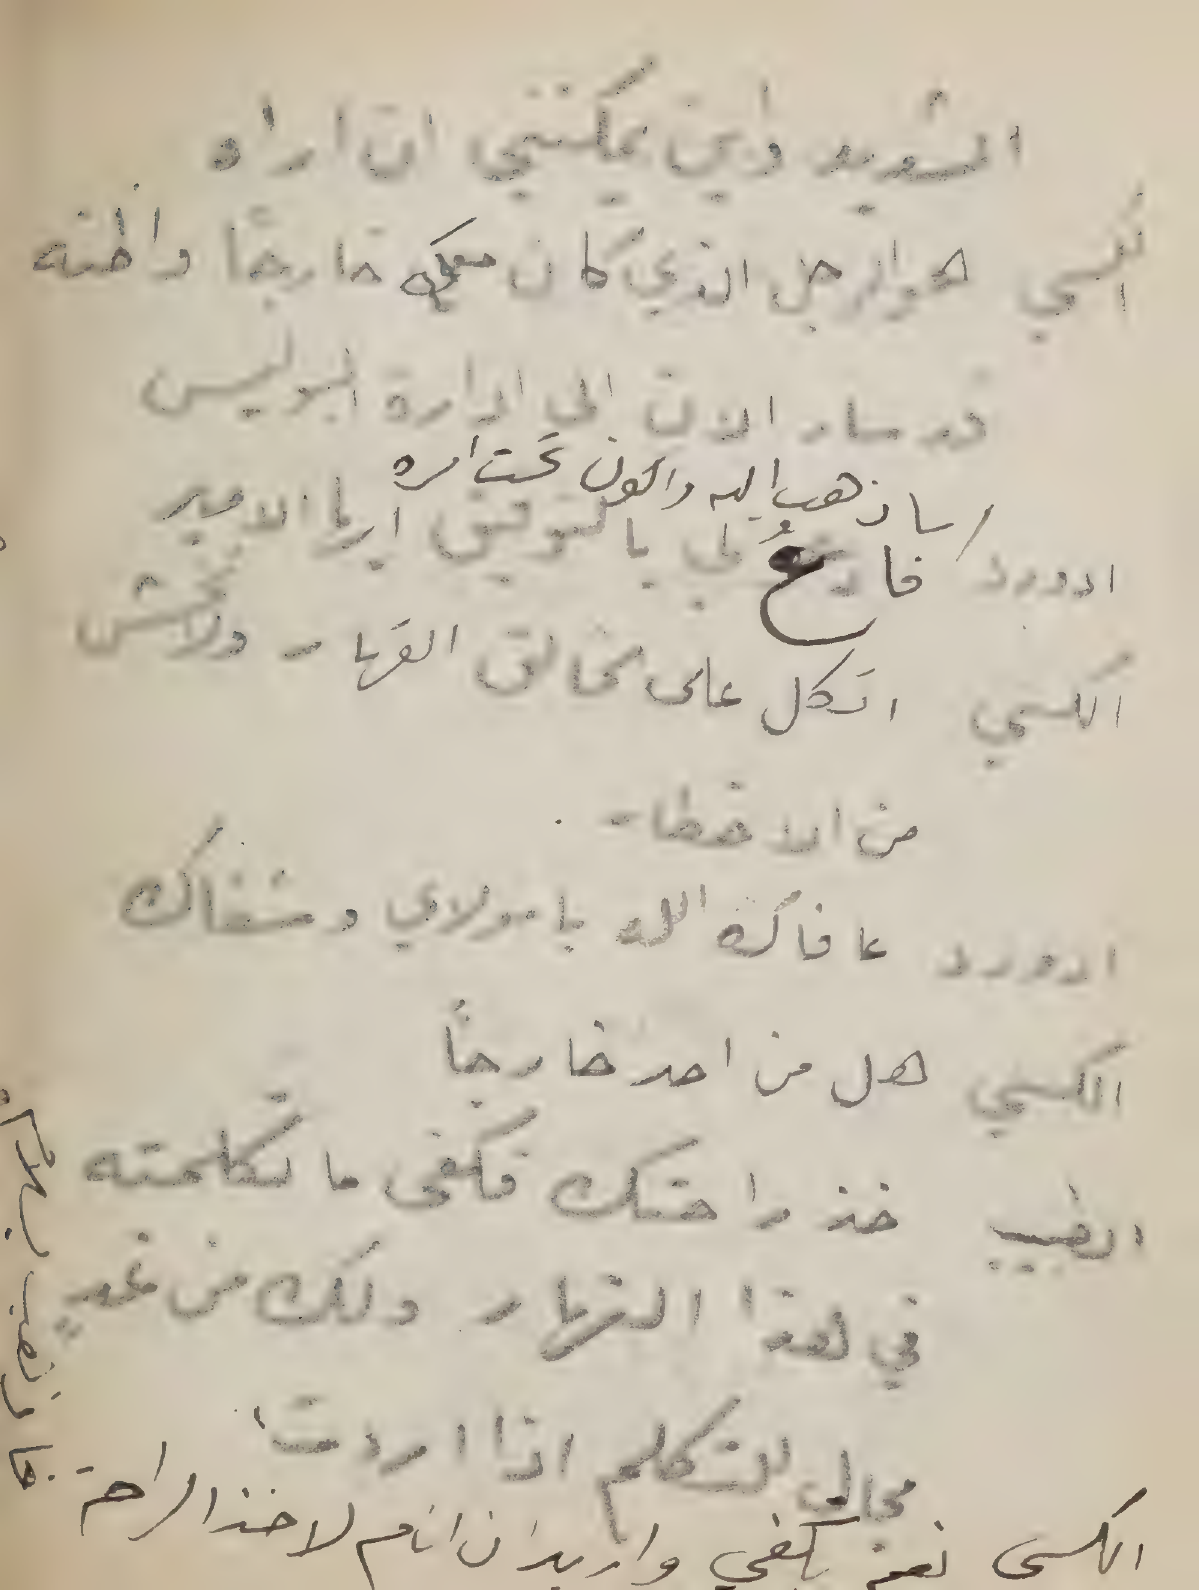 الشديد واين يمكنني ان اراه
الكسي هو الرجل الذي كان معكم خارجًا واظنه
قد سار الان الى ادارة البوليس
ساذهب اليه واكون تحت امره
ادورد فادعُ لي بالتوفيق ايها الامير
الكسي اتكل على خالق القهار ولاتخش
من الاخطار
ادورد عافاك الله يا مولاي وشفاك
الكسي هل من احد خارجًا
الطبيب خذ راحتك فكفى ما تكلمته
في هذا النهار ولك من غدٍ
مجال للتكلم اذا اردت
الكسي نعم يكفي واريد ان انام لاخذ الراحة
فاذهب بسلام